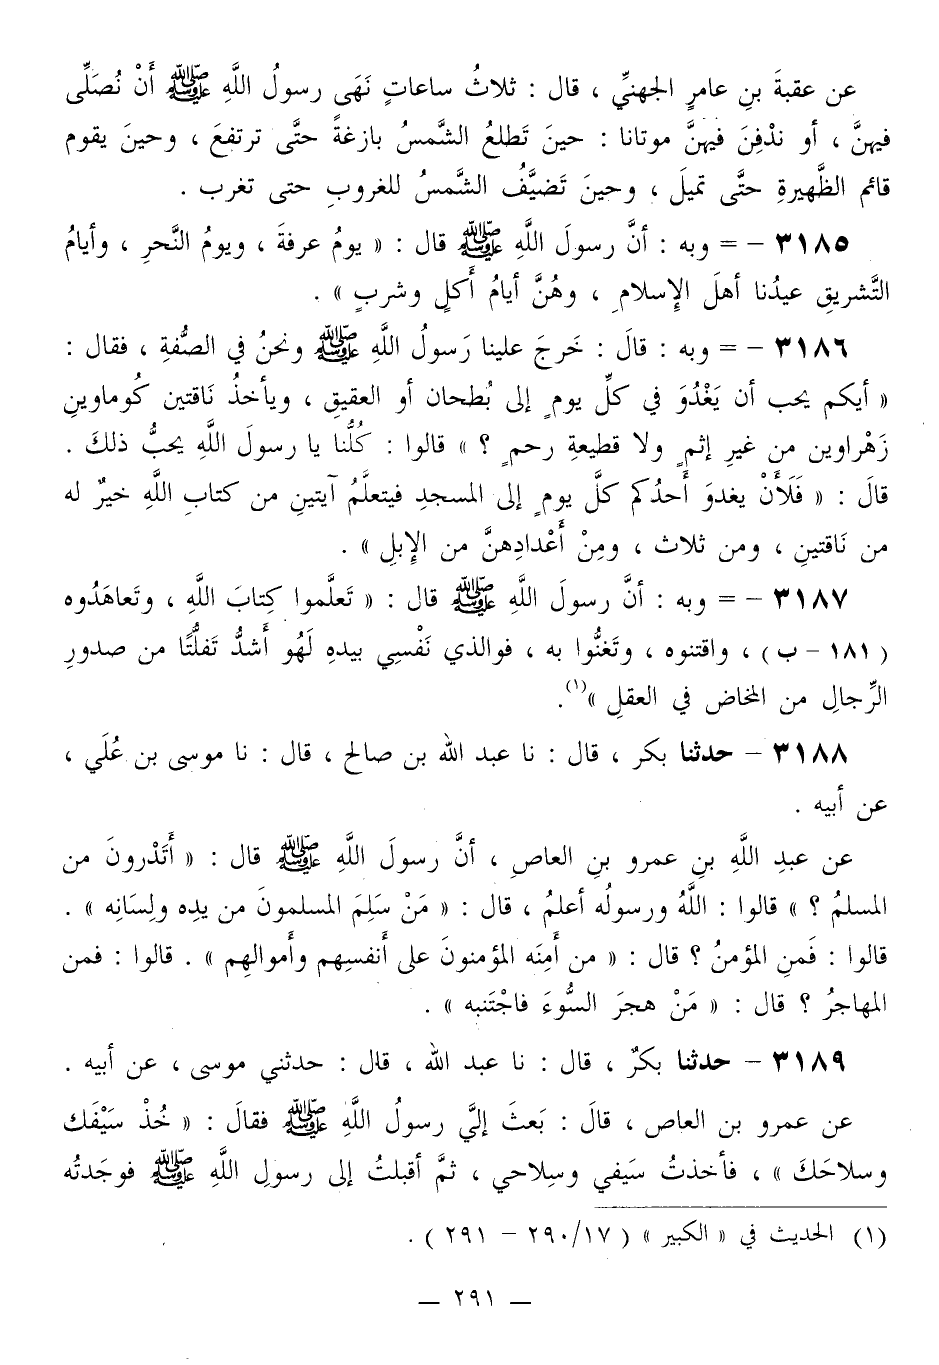 عن عقبةَ بنِ عامرٍ الجهنيِّ ، قال : ثلاثُ ساعاتٍ نَهَى رسولُ اللَّهِ ﷺ أَنْ نُصَلِّى
فيهنَّ ، أو ندْفِنَ فيهنَّ موتانا : حينَ تَطلعُ الشَّمسُ بازغةً حتَّى ترتفعَ ، وحينَ يقوم
قائم الظَّهيرةِ حتَّى تميلَ ، وحينَ تَضيَّفُ الشَّمسُ للغروبِ حتى تغرب .
٣١٨٥ – = وبه : أنَّ رسولَ اللَّهِ ﷺ قال : « يومُ عرفةَ ، ويومُ النَّحرِ ، وأيامُ
التَّشريقِ عيدُنا أهلَ الإسلامِ ، وهُنَّ أيامُ أَكلٍ وشربٍ » .
٣١٨٦ – = وبه : قالَ : خَرجَ علينا رَسولُ اللَّهِ ﷺ ونحنُ في الصُّفةِ ، فقال :
« أيكم يحب أن يَغْدُوَ في كلِّ يومٍ إلى بُطحان أو العقيقِ ، ويأخذُ نَاقتين كُوماوينِ
زَهْراوين من غيرِ إثمٍ ولا قطيعةِ رحمٍ ؟ » قالوا : كُلُّنا يا رسولَ اللَّهِ يحبُّ ذلكَ .
قالَ : « فَلَأَنْ يغدوَ أَحدُكم كلَّ يومٍ إلى المسجدِ فيتعلَّمُ آيتينِ من كتابِ اللَّهِ خيرٌ له
من نَاقتينِ ، ومن ثلاث ، ومِنْ أَعْدادِهنَّ من الإبلِ » .
٣١٨٧ – = وبه : أنَّ رسولَ اللَّهِ ﷺ قال : « تَعلَّموا كِتابَ اللَّهِ ، وتَعاهَدُوه
( ١٨١ – ب ) ، واقتنوه ، وتَغنُّوا به ، فوالذي نَفْسِي بيدهِ لَهُو أَشدُّ تَفلُّتًا من صدورِ
الرِّجالِ من المخاض في العقلِ »(١).
٣١٨٨ – حدثنا بكر ، قال : نا عبد الله بن صالح ، قال : نا موسى بن عُلَي ،
عن أبيه .
عن عبدِ اللَّهِ بنِ عمرو بنِ العاصِ ، أنَّ رسولَ اللَّهِ ﷺ قال : « أَتَدْرونَ من
المسلمُ ؟ » قالوا : اللَّهُ ورسولُه أعلمُ ، قال : « مَنْ سَلِمَ المسلمونَ من يدِه ولِسَانِه » .
قالوا : فَمنِ المؤمنُ ؟ قال : « من أَمِنَه المؤمنونَ على أَنفسِهم وأَموالهِم » . قالوا : فمن
المهاجرُ ؟ قال : « مَنْ هجرَ السُّوءَ فاجْتَنبه » .
٣١٨٩ – حدثنا بكرٌ ، قال : نا عبد الله ، قال : حدثني موسى ، عن أبيه .
عن عمرو بن العاص ، قالَ : بَعثَ إليَّ رسولُ اللَّهِ ﷺ فقالَ : « خُذْ سَيْفَك
وسلاحَكَ » ، فأخذتُ سَيفي وسِلاحي ، ثمَّ أقبلتُ إلى رسولِ اللَّهِ ﷺ فوجَدتُه
(١) الحديث في « الكبير » ( ١٧/ ٢٩٠ – ٢٩١ ) .
— ٢٩١ —